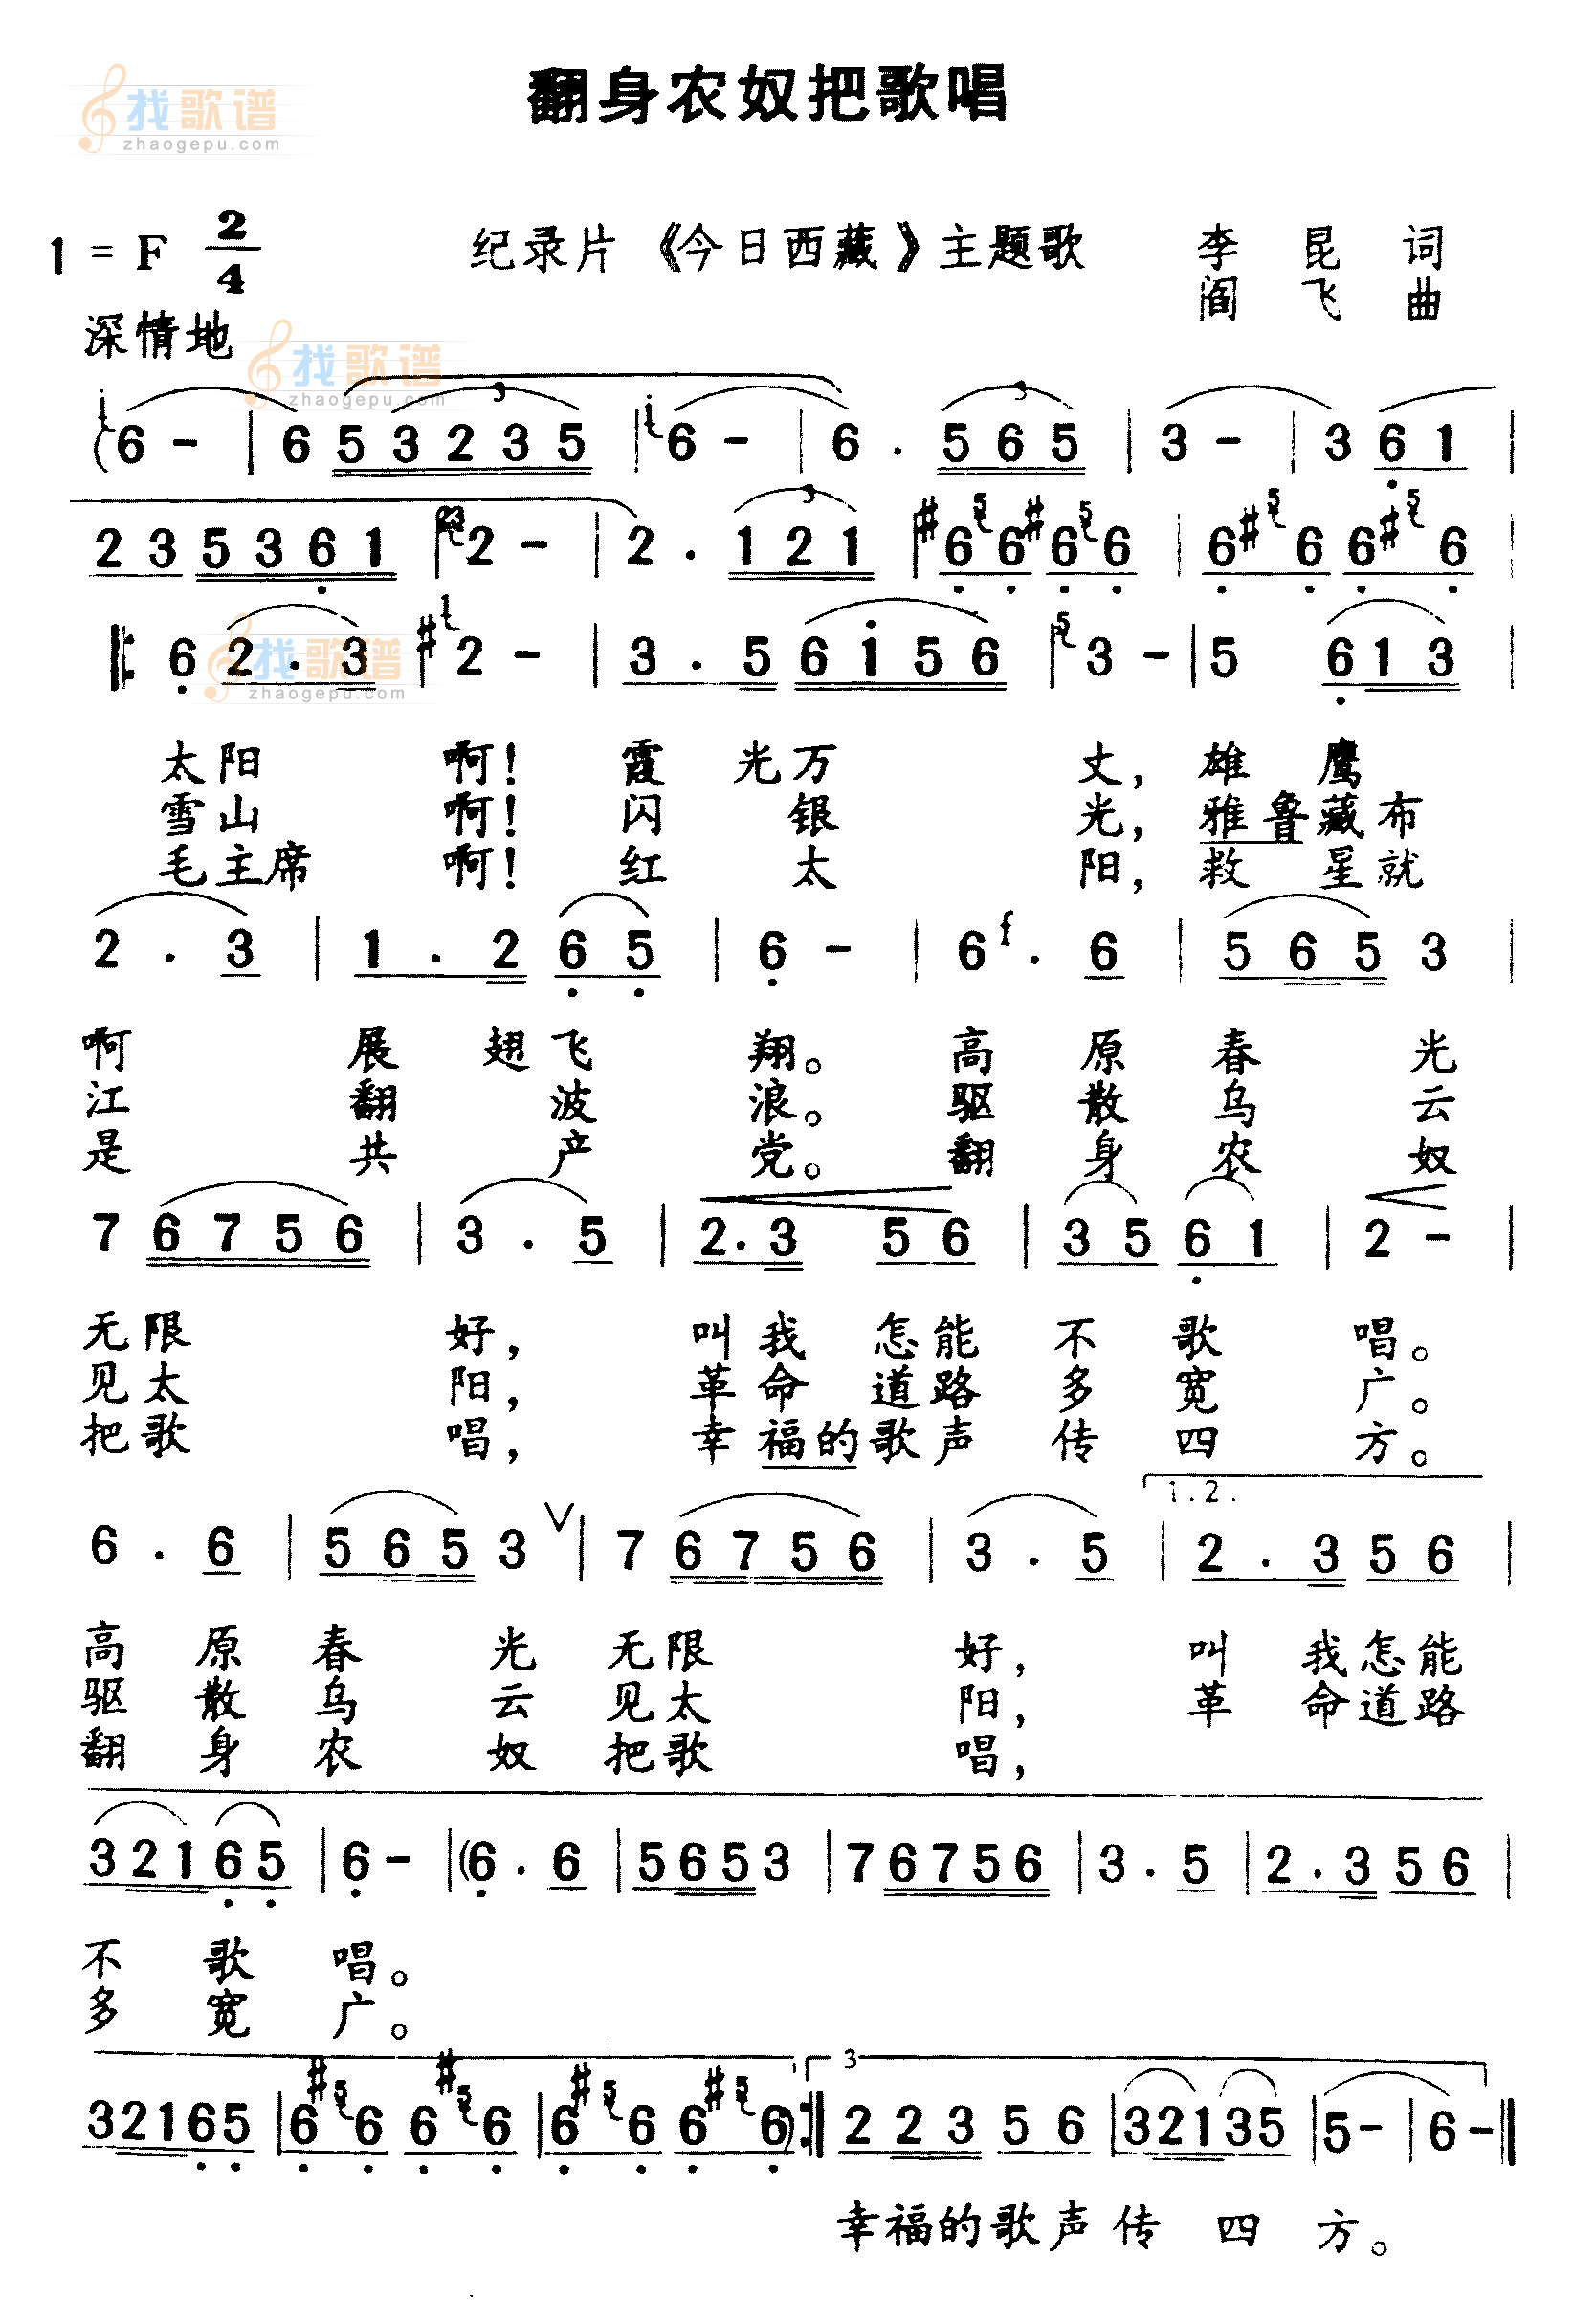 翻身农奴把歌唱
找歌谱
zhaogepu.com
1 = F 2/4
纪录片《今日西藏》主题歌
李 昆 词
阎 飞 曲
深情地
找歌谱
zhaogepu.com
(6 - | 6 5 3 2 3 5 | 6 - | 6 . 5 6 5 | 3 - | 3 6 1 |
2 3 5 3 6 1 | 2 - | 2 . 1 2 1 | #6 6 #6 6 | 6 #6 6 #6 |
找歌谱
zhaogepu.com
|: 6 2 . 3 | #2 - | 3 . 5 6 1 5 6 | 3 - | 5 6 1 3 |
太阳 啊! 霞 光万 丈, 雄 鹰
雪山 啊! 闪 银 光, 雅鲁藏布
毛主席 啊! 红 太 阳, 救 星就
2 . 3 | 1 . 2 6 5 | 6 - | 6 . 6 | 5 6 5 3 |
啊 展 翅飞 翔。 高 原 春 光
江 翻 波 浪。 驱 散 乌 云
是 共 产 党。 翻 身 农 奴
7 6 7 5 6 | 3 . 5 | 2 . 3 5 6 | 3 5 6 1 | 2 - |
无限 好, 叫我 怎能 不 歌 唱。
见太 阳, 革命 道路 多 宽 广。
把歌 唱, 幸福的歌声 传 四 方。
1.2.
6 . 6 | 5 6 5 3 V | 7 6 7 5 6 | 3 . 5 | 2 . 3 5 6 |
高 原 春 光 无限 好, 叫 我怎能
驱 散 乌 云 见太 阳, 革 命道路
翻 身 农 奴 把歌 唱,
3 2 1 6 5 | 6 - | (6 . 6 | 5 6 5 3 | 7 6 7 5 6 | 3 . 5 | 2 . 3 5 6 |
不 歌 唱。
多 宽 广。
3
3 2 1 6 5 | #6 6 #6 6 | #6 6 #6 6) :| 2 2 3 5 6 | 3 2 1 3 5 | 5 - | 6 - ||
幸福的歌声传 四 方。